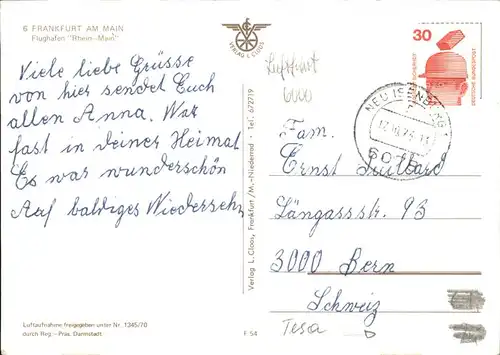 6 FRANKFURT AM MAIN
Flughafen "Rhein-Main"
Viele liebe Grüsse
von hier sendet Euch
allen Anna. War
fast in deiner Heimat
Es war wunderschön
Auf baldiges Wiedersehn
Luftaufnahme freigegeben unter Nr. 1345/70
durch Reg.-Präs. Darmstadt
VERLAG L. CLOOS
Verlag L. Cloos, Frankfurt/M.-Niederrad - Tel. 672719
F 54
Luftfahrt
6000
30
DEUTSCHE BUNDESPOST
NEU ISENBURG
6078
Fam.
Ernst
Längassstr. 93
3000 Bern
Schweiz
Tesa